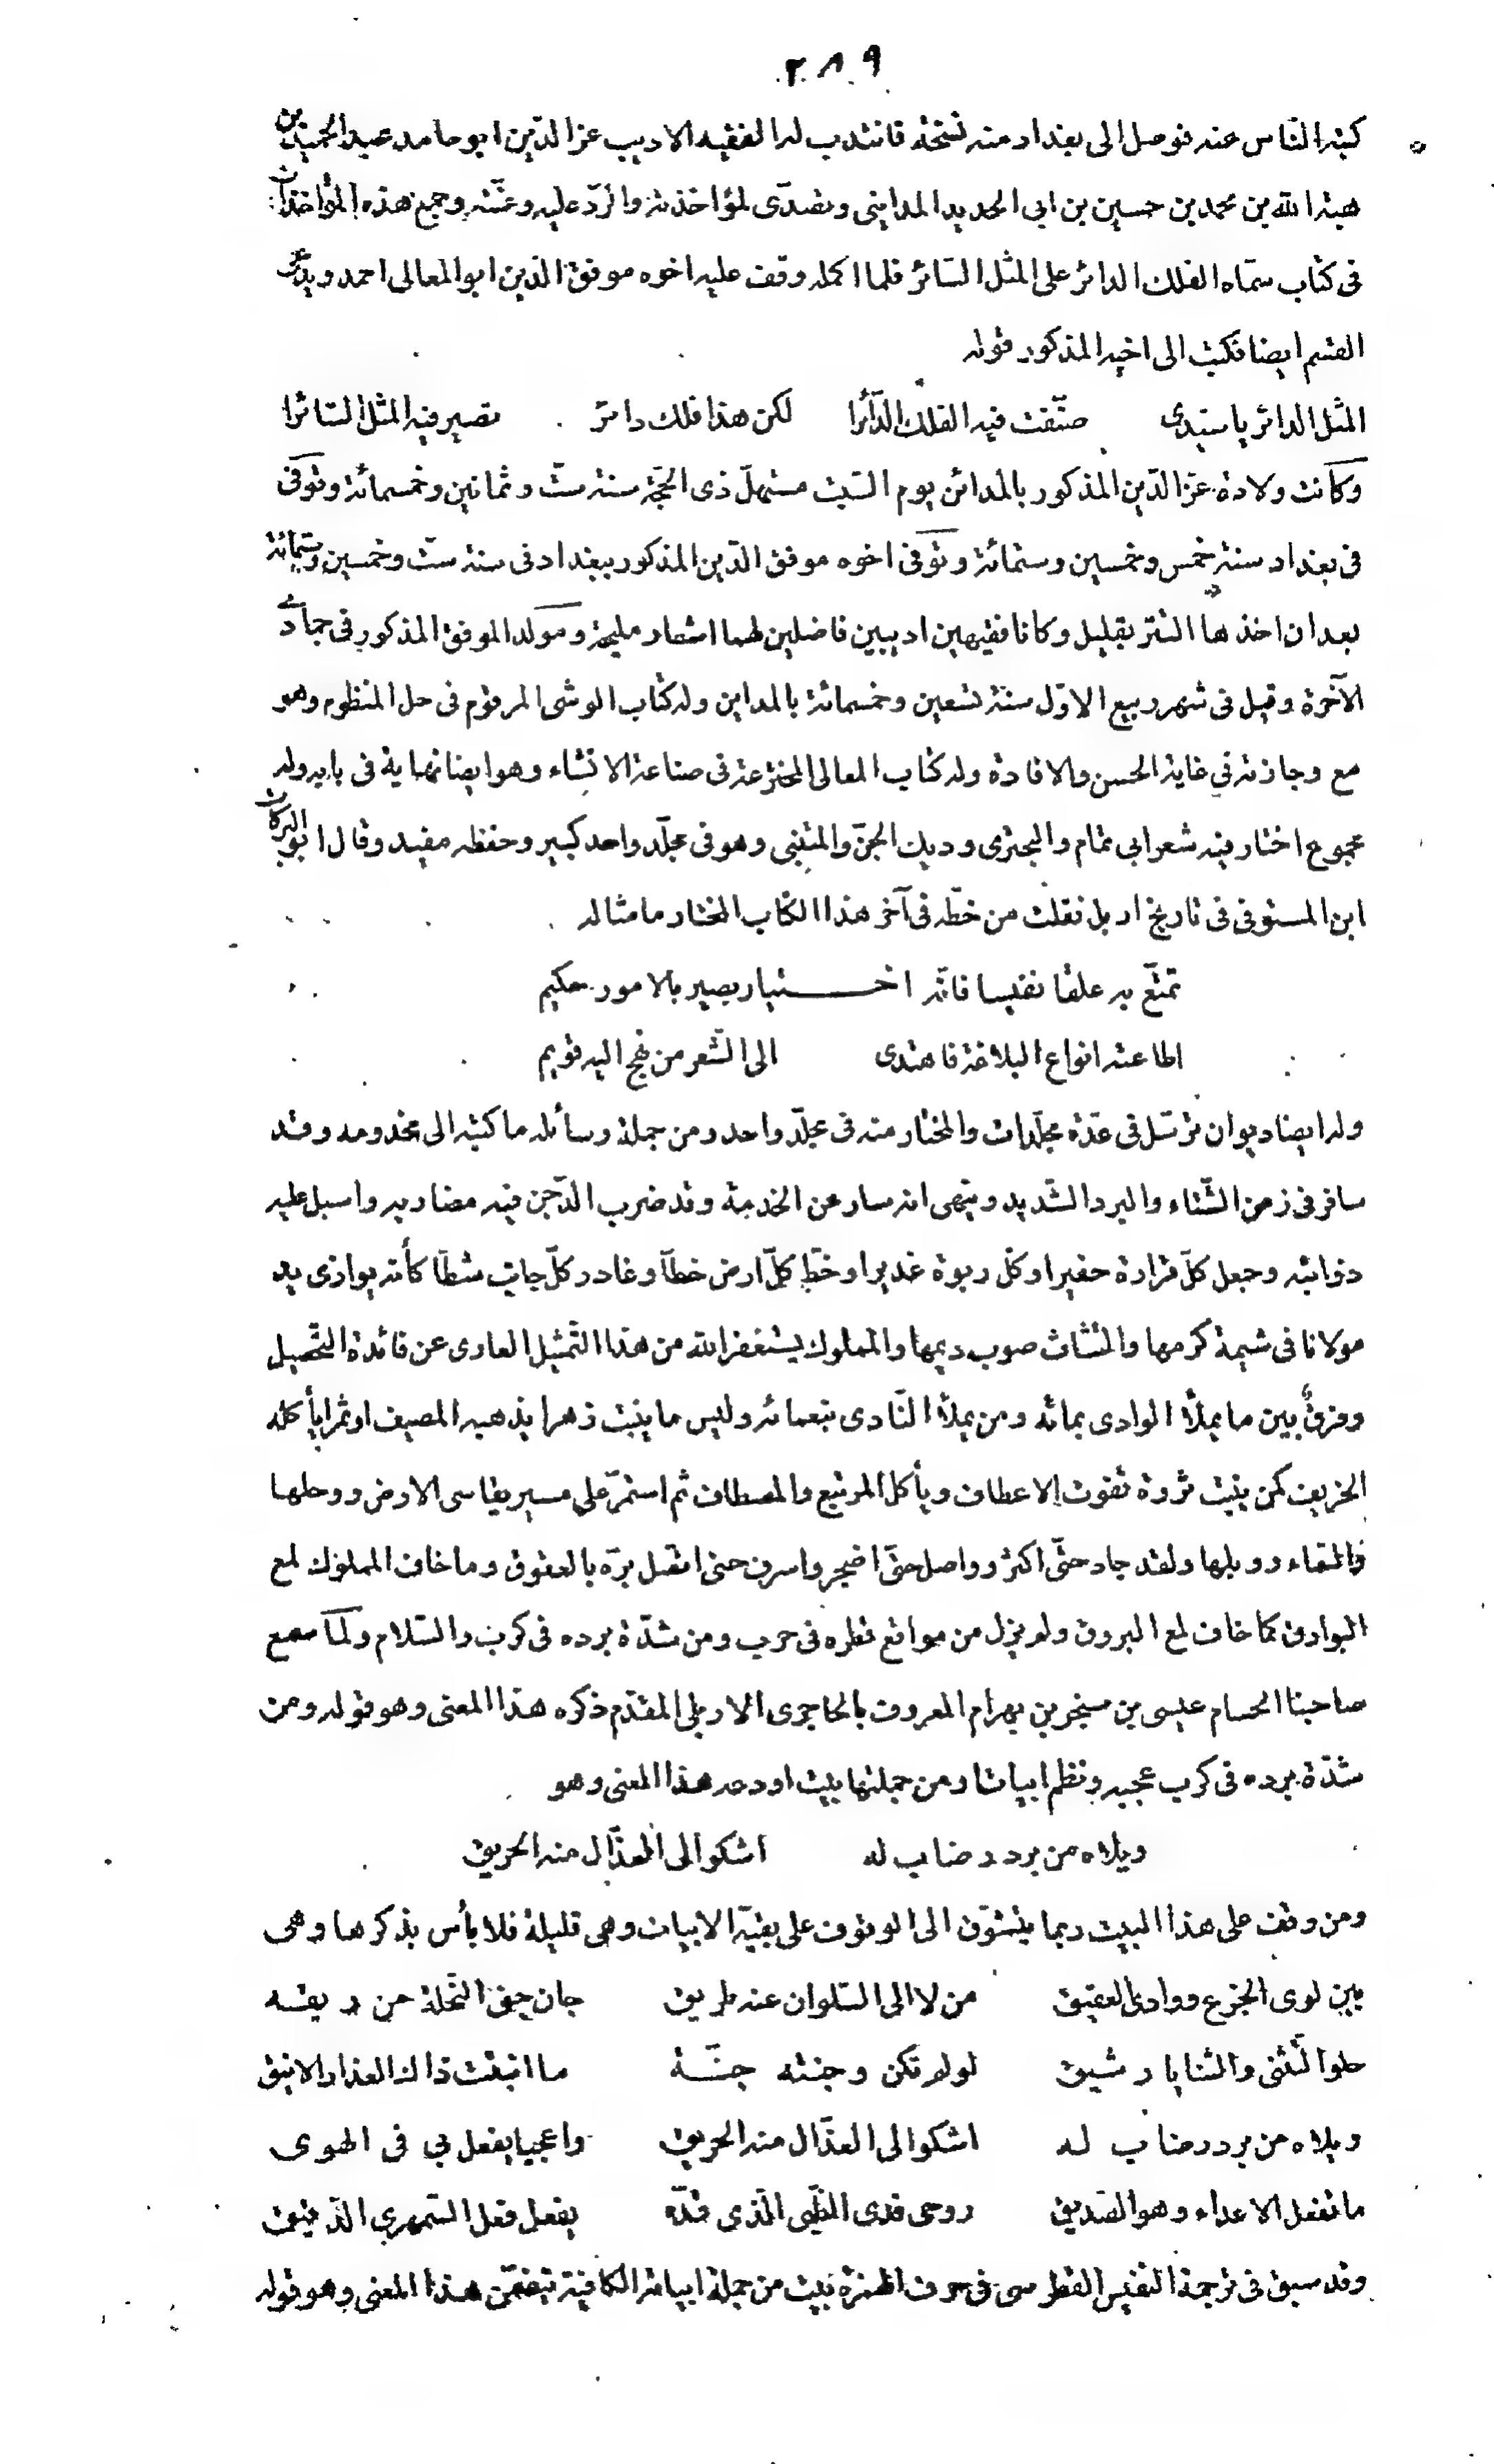 ٢٨٩
كتبه النّاس عنه فوصل الى بغداد منه نسخة فانتدب له الفقيه الاديب عز الدّين ابو حامد عبد الحميد بن
هبة الله بن محمد بن حسين بن ابى الحديد المداينى وتصدّى لمؤاخذته والردّ عليه وعنّته وجمع هذه المؤاخذات
فى كتاب سمّاه الفلك الدائر على المثل السّائر فلما اكمله وقف عليه اخوه موفق الدّين ابو المعالى احمد ويدعى
القسم ايضا فكتب الى اخيه المذكور قوله
المثل الدائر يا سيّدى صنّفت فيه الفلك الدّآئرا لكن هذا فلك دائر تصير فيه المثل السّائرا
وكانت ولادة عزّ الدّين المذكور بالمدائن يوم السّبت مستهلّ ذى الحجّة سنة ستّ وثمانين وخمسمائة وتوفى
فى بغداد سنة خمس وخمسين وستمائة وتوفى اخوه موفق الدّين المذكور ببغداد فى سنة ستّ وخمسين وستمائة
بعد ان اخذها التتر بقليل وكانا فقيهين اديبين فاضلين لهما اشعار مليحة ومولد الموفق المذكور فى جمادى
الآخرة وقيل فى شهر ربيع الاوّل سنة تسعين وخمسمائة بالمداين وله كتاب الوشى المرقوم فى حل المنظوم وهو
مع وجازته فى غاية الحسن والافادة وله كتاب المعالى المخترعة فى صناعة الانشاء وهو ايضا نهاية فى بابه وله
مجموع اختار فيه شعر ابى تمام والبحترى وديك الجنّ والمتنبى وهو فى مجلّد واحد كبير وحفظه مفيد وقال ابو البركات
ابن المستوفى فى تاريخ اربل نقلت من خطّه فى آخر هذا الكتاب المختار ما مثاله
تمتّع به علقا نفيسا فانّه اختيار بصير بالامور حكيم
اطاعته انواع البلاغة فاهتدى الى الشّعر من نهج اليه قويم
وله ايضا ديوان ترسّل فى عدّة مجلّدات والمختار منه فى مجلّد واحد ومن جملة رسائله ما كتبه الى مخدومه وقد
سافر فى زمن الشّتاء والبرد الشّديد وينهى انه سار عن الخدمة وقد ضرب الدّجن فيه مضاربه واسبل عليه
ذوائبه وجعل كلّ قرارة حفيرا وكلّ ربوة غديرا وخطّ كلّ ارض خطّا وغادر كلّ جانب شطّا كأنه يوازى يد
مولانا فى شيمة كرمها والتثاث صوب ديمها والمملوك يستغفر الله من هذا التّمثيل العارى عن فائدة التّحصيل
وفرق بين ما يملأ الوادى بمائه ومن يملأ النّادى بنعمائه وليس ما ينبت زهرا يذهبه المصيف او ثمرا يأكله
الخريف كمن ينبت ثروة تفوت الاعطاف ويأكل المرتبع والمصطاف ثم استمرّ على مسير يقاسى الارض ووحلها
والسّماء ووبلها ولقد جاد حتّى اكثر وواصل حتّى اضجر واسرف حتى اتصل برّه بالعقوق وما خاف المملوك لمع
البوارق كما خاف لمع البروق ولم يزل من مواقع قطره فى حرب ومن شدّة برده فى كرب والسّلام ولمّا سمع
صاحبنا الحسام عيسى بن سنجر بن بهرام المعروف بالحاجرى الاربلى المقدّم ذكره هذا المعنى وهو قوله ومن
شدّة برده فى كرب عجبه ونظم ابياتا ومن جملتها بيت اودعه هذا المعنى وهو
ويلاه من برد رضاب له اشكو الى العذّال منه الحريق
ومن وقف على هذا البيت ربما يتشوّق الى الوقوف على بقيّة الابيات وهى قليلة فلا بأس بذكرها وهى
بين لوى الجزع ووادى العقيق من لا الى السّلوان عنه طريق جان جنى النّحلة من ريقه
حلو التّثنى والثنايا رشيق لو لم تكن وجنته جنّة ما انبتت ذاك العذار الانيق
ويلاه من برد رضاب له اشكو الى العذّال منه الحريق واعجبا يفعل بى فى الهوى
ما تفعل الاعداء وهو الصّديق روحى فدى الظّبى الّذى قدّه يفعل فعل السّمهرى الدّقيق
وقد سبق فى ترجمة النفيس القطرسى فى حرف الهمزة بيت من جملة ابياته الكافية يتضمّن هذا المعنى وهو قوله